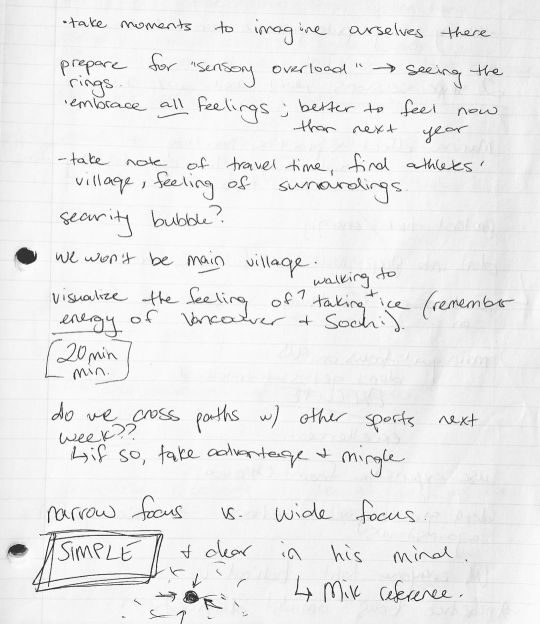 •take moments to imagine ourselves there
prepare for "sensory overload" → seeing the
rings.
•embrace all feelings; better to feel now
than next year
- take note of travel time, find athletes'
village, feeling of surroundings.
security bubble?
we won't be main village.
walking to
visualize the feeling of ^ taking + ice (remember
energy of Vancouver + Sochi).
20 min
min.
do we cross paths w/ other sports next
week??
↳ if so, take advantage + mingle
narrow focus vs. wide focus.
SIMPLE + clear in his mind.
↳ Milk reference.